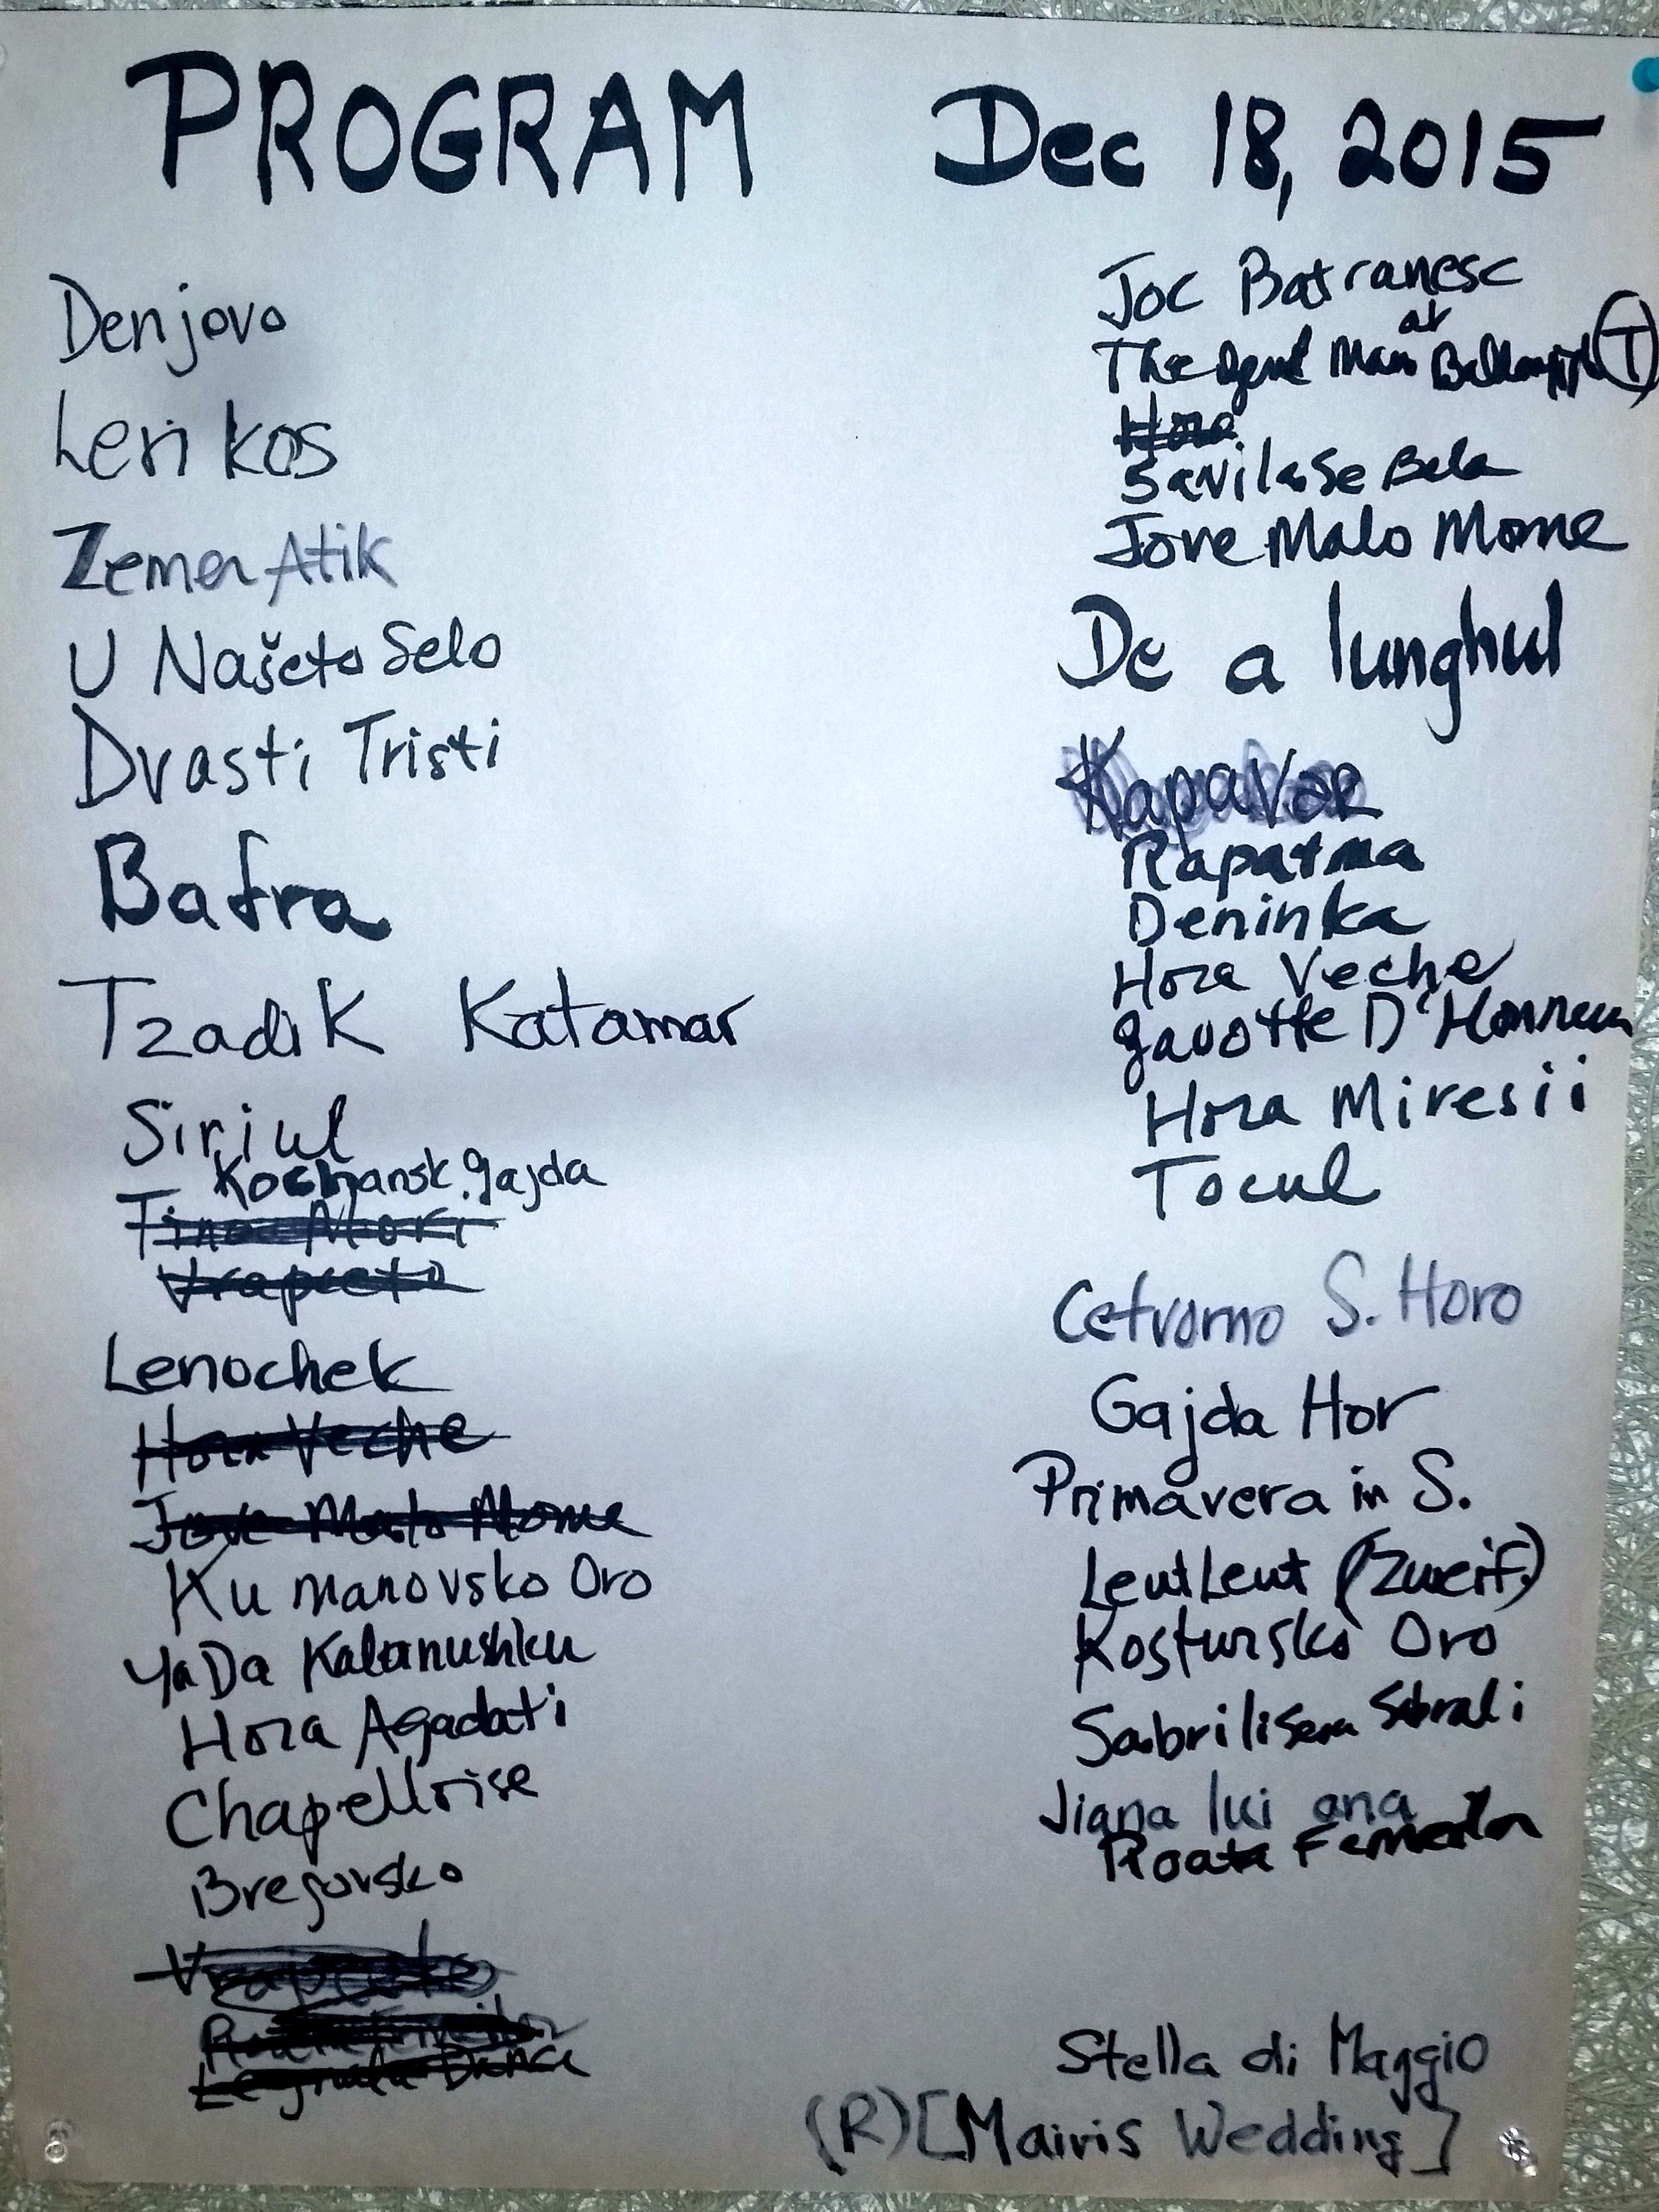 PROGRAM Dec 18, 2015
Denjovo
Leri kos
Zemer Atik
U Našeto Selo
Dvasti Tristi
Bafra
Tzadik Katamar
Siriul
Kochansk. gajda
Tino Mori
Vrapceto
Lenochek
Hora Veche
Jove Malo Mome
Kumanovsko Oro
Ya Da Kalanushku
Hora Agadati
Chapelloise
Bregovsko
Joc Batranesc
at
The Man (T)
Hora
Savila Se Bela
Jove Malo Mome
De a lunghul
Kapavar
Rapatma
Deninka
Hora Veche
Gavotte D'Honneur
Hora Miresii
Tocul
Cetvorno S. Horo
Gajda Hor
Primavera in S.
Leut Leut (Zweif.)
Kostursko Oro
Sabrali
Jiana lui ana
Roata Femeilor
Stella di Maggio
(R) [Mairis Wedding]